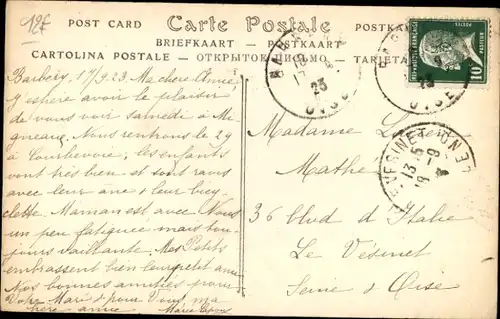 12f
POST CARD Carte Postale POSTKARTE
BRIEFKAART — POSTKAART
CARTOLINA POSTALE — ОТКРЫТОЕ ПИСЬМО — TARJETA
RÉPUBLIQUE FRANÇAISE
10
23
OISE
LE VESINET
13
19 -9
Barbery 17/9.23 Ma chère Amie
J'espère avoir le plaisir
de vous voir samedi à
Nous rentrons le 29
à Courbevoie; les enfants
vont très bien et sont ravis
avec leur âne & leur bicy-
clette. Maman est avec Nous
un peu fatiguée mais tou-
jours vaillante. Mes Petits
embrassent bien leur petit ami
Nos bonnes amitiés pour
Votre Mari & pour Vous, ma
chère amie Marie
Madame
Mathé
36 blvd d'Italie
Le Vésinet
Seine & Oise